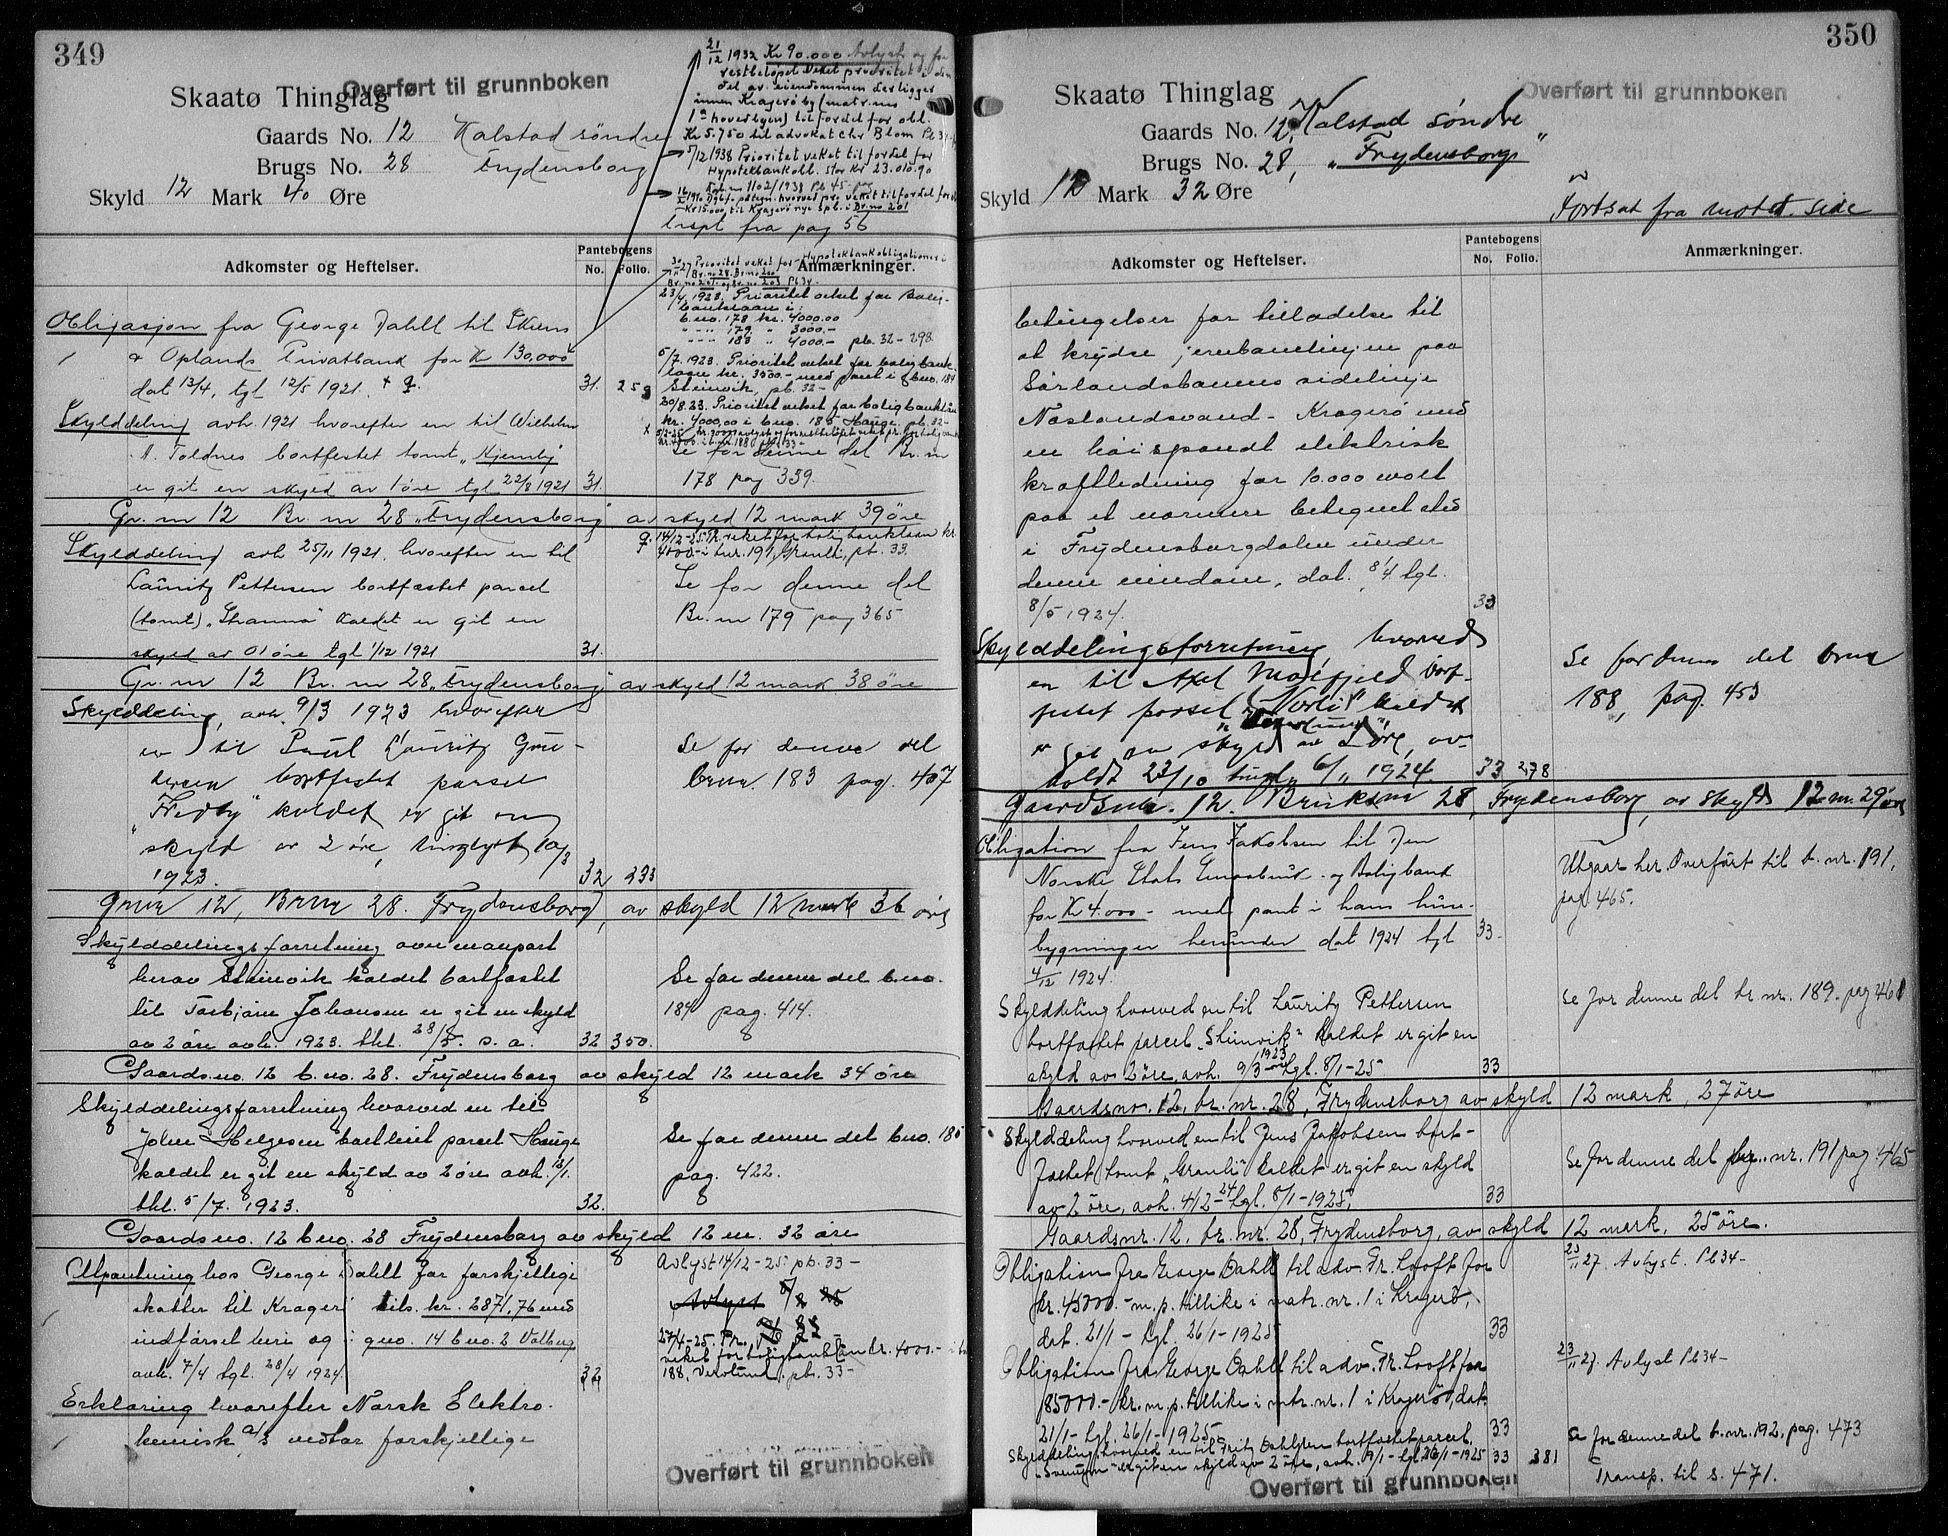 349
Overført til grunnboken
Skaatø Thinglag
Gaards No. 12 Kalstad søndre
Brugs No. 28 Frydensborg
Skyld 12 Mark 40 Øre
21/12 1932 Kr 90.000 Avlyst og for
restbeløpet veket prioritet i den
del av eiendommen der ligger
innen Kragerø by (matr. nr.
1a hovedbygn) til fordel for obl.
Kr 5.750 til advokat Chr Blom Pb 37
5/12 1938 Prioritet veket til fordel for
Hypotekbankobl. stor Kr 23.010.90
Kr 15.000 til Kragerø nye Spb. i Br.no 201
Transp fra pag 56
Adkomster og Heftelser.
Pantebogens
No. Folio.
Anmærkninger.
Prioritet veket for Hypotekbankobligationer i
Br. no 28. Br. no 200
Br. no 201 og Br. no 203 Pb 34-
23/4 1923. Prioritet veket for Bolig-
banklaan i
b.no. 178 kr. 4000.00
" 179 " 3000.-
" 183 " 4000.- pb. 32-298
Obligasjon fra George Dahll til Skiens
& Oplands Privatbank for Kr 130,000
dat 13/4, tgl 12/5 1921. + q. 31. 253
5/7. 1923. Prioritet veket for boligbank-
laan kr. 3500.- med pant i b.no. 184
Steinvik, pb. 32-
20/8.23. Prioritet veket for boligbanklån
kr. 4000,00 i b.no. 185 Hauge. pb. 32-
Skylddeling avh. 1921 hvorefter en til Wilhelm
A. Toldnes bortfestet tomt "Kjemby"
er git en skyld av 1 øre tgl 22/8 1921 31.
Se for denne del Br. nr
178 pag 359.
Gr. nr 12 Br. nr 28 "Frydensborg" av skyld 12 mark 39 øre
q. 14/12-25 Pr. veket for boligbanklaan kr.
4000- i bnr. 191, Granli, pb. 33.
Skylddeling avh 25/11 1921. hvorefter en til
Lauritz Pettersen bortfæstet parcel
(tomt) "Skanna" kaldet er git en
skyld av 01 øre tgl 1/12 1921 31.
Se for denne del
Br. nr 179 pag 365
Gr. nr 12 Br. nr 28 "Frydensborg" av skyld 12 mark 38 øre
Skylddeling, avh. 9/3 1923 hvorefter
en til Paul Lauritz Gun-
dersen bortfestet parsel
"Fredby" kaldet er git en
skyld av 2 øre, tinglyst 10/3
1923. 32 233
Se for denne del
brnr. 183 pag. 407
Gnr 12, Brnr 28. Frydensborg, av skyld 12 mark 36 øre
Skylddelingsforretning over en part
herav Steinvik kaldet bortfæstet
til Torbjørn Johansen er git en skyld
av 2 øre avh. 1923. thl. 28/5. s. a. 32 350.
Se for denne del b.no.
184 pag. 414.
Gaards no. 12 b.no. 28. Frydensborg av skyld 12 mark 34 øre
Skylddelingsforretning hvorved en til
John Helgesen bortleiet parcel Hauge
kaldet er git en skyld av 2 øre avh. 13/1.
thl. 5/7. 1923. 32.
Se for denne del b.no. 185
pag. 422.
Gaards no. 12 b.no. 28 Frydensborg av skyld 12 m. 32 øre
Utpantning hos George Dahll for forskjellige
skatter til Kragerø tils. kr. 2871,76 med
indførsel heri og i gno. 14 b.no. 2 Valberg
avh. 7/4 tgl. 28/4 1924. 32
Avlyst 14/12-25 pb. 33-
Avlyst
27/4-25. Pr.
veket for boligbanklån kr. 4000.-
188, Verolund, pb. 33-
Erklæring hvorefter Norsk Elektro-
kemisk a/s vedtar forskjellige
Overført til grunnboken
350
Overført til grunnboken
Skaatø Thinglag
Gaards No. 12, Kalstad søndre
Brugs No. 28, "Frydensborg"
Skyld 12 Mark 32 Øre
Fortsat fra motst. side
Adkomster og Heftelser.
Pantebogens
No. Folio.
Anmærkninger.
betingelser for tilladelse til
at krydse jernbanelinjen paa
Sørlandsbanens sidelinje
Neslandsvand - Kragerø med
en høispændt elektrisk
kraftledning for 10.000 volt
paa et nærmere betegnet sted
i Frydensborgdalen under
denne eiendom, dat. 8/4 tgl.
8/5 1924. 33
Skylddelingsforretning hvorved
en til Axel Mosfjeld bort-
festet parsel "Norli" kaldet
er git en skyld av 3 øre, av-
holdt 23/10 tingl. 6/11 1924. 33 278
Se for denne del brnr
188, pag. 453
Gaardsnr. 12. Bruksnr 28, Frydensborg, av skyld 12 m. 29 øre
Obligation fra Jens Jakobsen til Den
Norske Stats Smaabruk- og Boligbank
for Kr 4.000 - med pant i hans hus-
bygninger herunder dat 1924 tgl
4/12 1924. 33-
Utgaar her. Overført til b. nr. 191,
pag. 465.
Skylddeling hvorved en til Lauritz Pettersen
bortfæstet parcel "Steinvik" kaldet er git en
skyld av 2 øre, avh. 9/3-1923 tgl. 8/1-25 33
Se for denne del br nr. 189. pag 461
Gaardsno. 12, br. nr. 28, Frydensborg av skyld 12 mark, 27 øre
Skylddeling hvorved en til Jens Jakobsen bort-
fæstet tomt "Granli" kaldet er git en skyld
av 2 øre, avh. 4/12-24 tgl. 8/1-1925. 33
Se for denne del br. nr. 191 pag. 465
Gaardsnr. 12, br. nr. 28, Frydensborg, av skyld 12 mark, 25 øre.
Obligation fra George Dahll til adv. Fr. Looft for
kr. 45000.- m. p. tillike i matr. nr. 1 i Kragerø,
dat. 21/1 - tgl. 26/1-1925 33
23/11 27. Avlyst. Pb 34-
Obligation fra George Dahll til adv. Fr. Looft for
85000.- kr. m. p. tillike i mtr. nr. 1 i Kragerø, dat.
21/1 - tgl. 26/1-1925. 33
23/11 27. Avlyst Pb 34-
Skylddeling hvorved en til Fritz Dahlgren bortfæstet parcel,
er git en skyld av 2 øre, avh. 9/1- tgl. 26/1-1925 33 381
Se for denne del b. nr. 192, pag. 473
Transp. til s. 471.
Overført til grunnboken